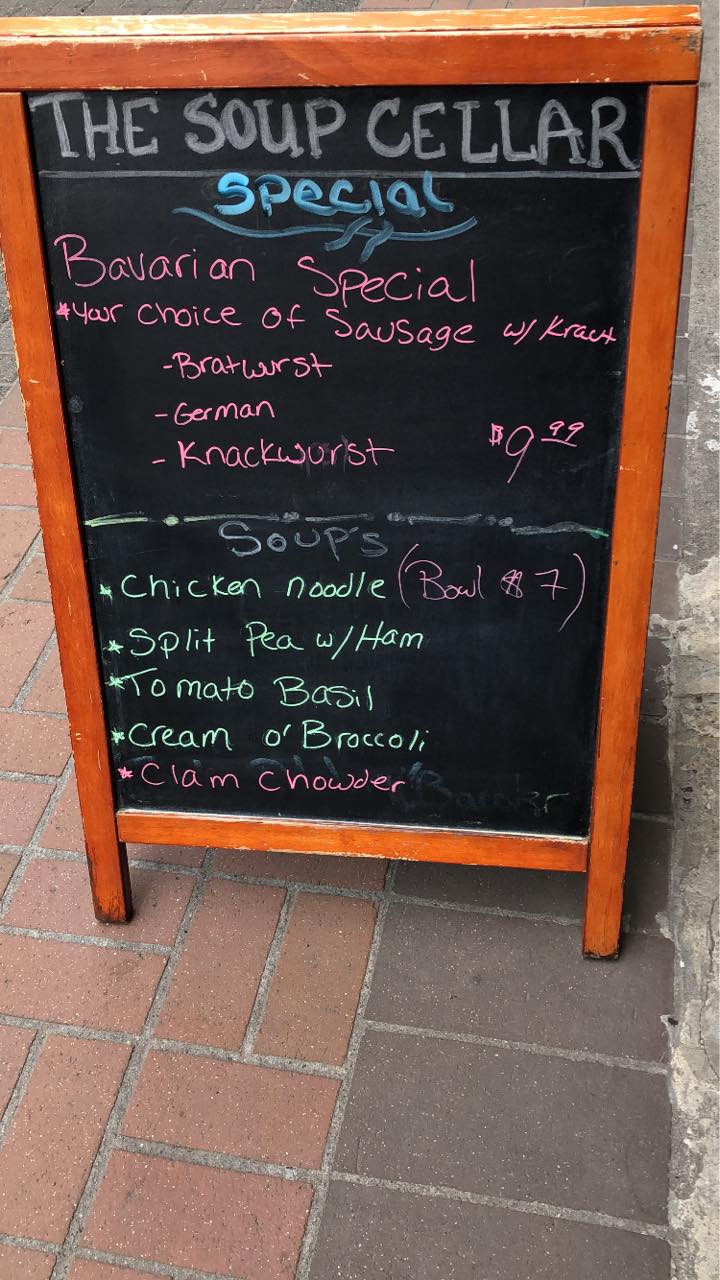 THE SOUP CELLAR
Special
Bavarian Special
*Your choice of Sausage w/ Kraut
-Bratwurst
-German
- Knackwurst $9 99
Soup's
* Chicken noodle (Bowl $7)
*Split Pea w/Ham
*Tomato Basil
*Cream o' Broccoli
*Clam Chowder